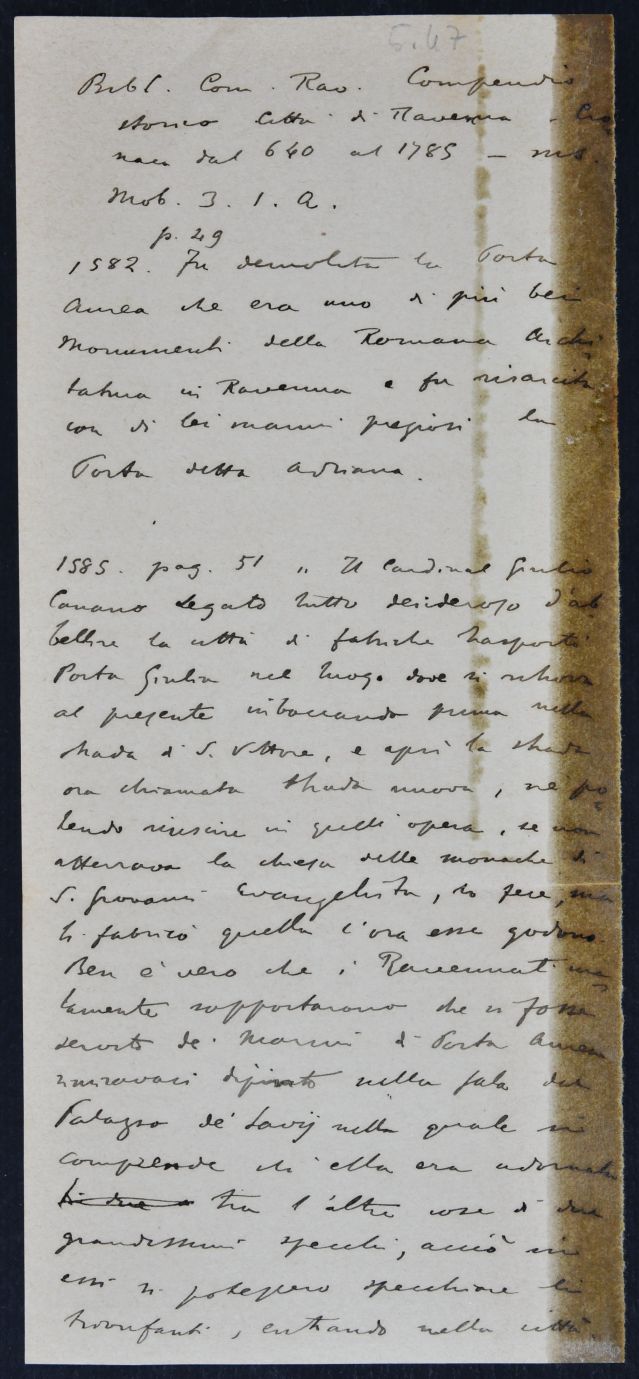 5.47
Bibl. Com. Rav. Compendio
storico Città di Ravenna - Cro
naca dal 640 al 1785 - ms.
Mob. 3. 1. A.
p. 49
1582. Fu demolita la Porta
Aurea che era uno di più bei
Monumenti della Romana Archi
tettura in Ravenna e fu risarcita
con di lei marmi preziosi la
Porta detta Adriana.
1585. pag. 51 " Il Cardinal Giulio
Canano Legato tutto desideroso d'ab
bellire la città di fabriche trasportò
Porta Giulia nel luogo dove si ritrova
al presente imboccando prima nella
strada di S. Vittore, e aprì la strada
ora chiamata strada nuova, nè po
tendo riuscire in quell'opera, se non
atterrava la chiesa delle monache di
S. Giovanni Evangelista, lo fece, ma
li fabricò quella c'ora esse godono.
Ben è vero che i Ravennati
sopportarono che si fosse
servito de' Marmi di Porta Aurea
miravasi dipinto nella sala del
Palazzo de' Savij nella quale si
comprende ch'ella era adornata
tra l'altre cose di due
grandissimi specchi, acciò in
essi si potessero specchiare li
trionfanti, entrando nella città